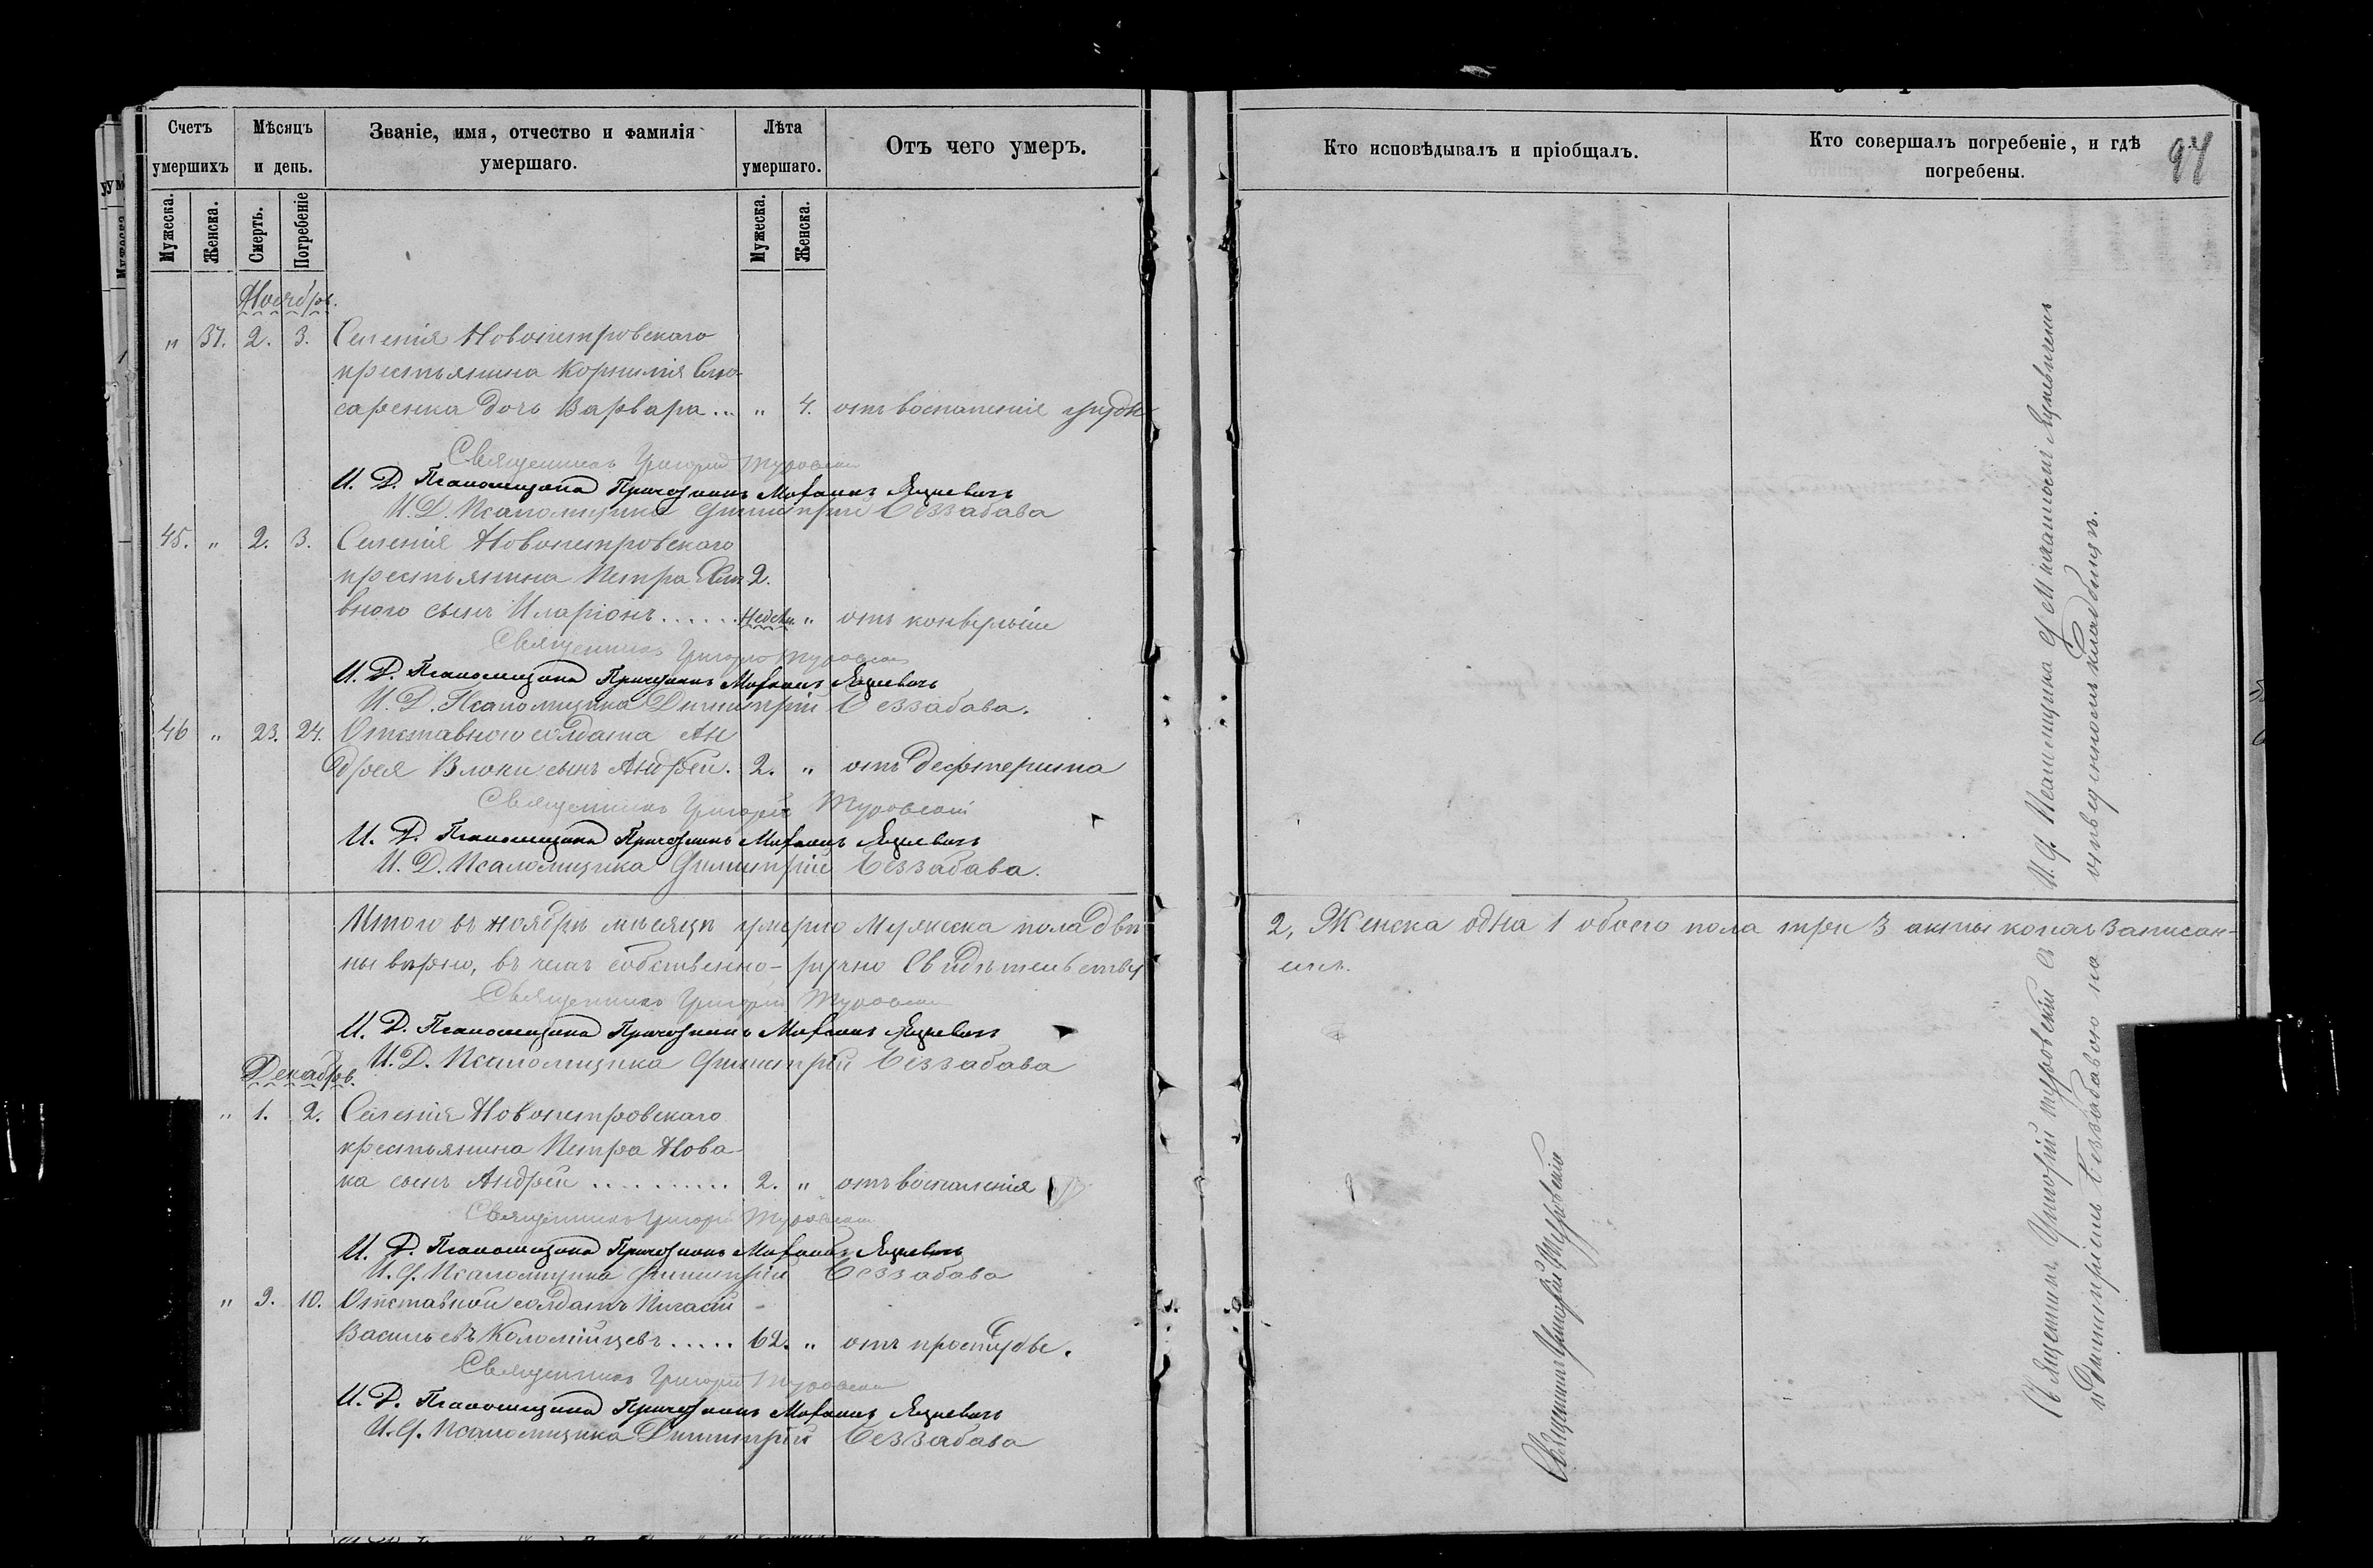 Счетъ умершихъ
Мѣсяцъ и день.
Званіе, имя, отчество и фамилія умершаго.
Лѣта умершаго.
Отъ чего умеръ.
Мужеска. Женска. Смерть. Погребеніе Мужеска. Женска.
Ноябрь.
" 37. 2. 3. Селенія Новопетровскаго
крестьянина Корнилія Слю-
саренка дочь Варвара... " 4. отъ воспаленія груди
Священникъ Григорій Туровскій
И. Д. Псаломщика Михаилъ
И. Д. Псаломщика Димитрій Беззабава
45. " 2. 3. Селенія Новопетровскаго
крестьянина Петра 2.
вного сынъ Иларіонъ...... недѣли "
Священникъ Григорій Туровскій
И. Д. Псаломщика Михаилъ
И. Д. Псаломщика Димитрій Беззабава.
46 " 23. 24. Отставного солдата Ан
дрея сынъ Андрей. 2. " отъ дефтерита
Священникъ Григорій Туровскій
И. Д. Псаломщика Михаилъ
И. Д. Псаломщика Димитрій Беззабава.
Итого въ ноябрѣ мѣсяцѣ умерло Мужеска пола два 2, Женска одна 1 обоего пола три 3 акты коихъ записан-
ны вѣрно, въ чемъ собственно-ручно Свидѣтельству емъ.
Священникъ Григорій Туровскій
И. Д. Псаломщика Михаилъ
И. Д. Псаломщика Димитрій Беззабава
Декабрь.
" 1. 2. Селенія Новопетровскаго
крестьянина Петра Нова-
ка сынъ Андрей.......... 2. " отъ воспаленія
Священникъ Григорій Туровскій
И. Д. Псаломщика Михаилъ
И. Д. Псаломщика Димитрій Беззабава
" 9. 10. Отставной солдатъ
Васильевъ Коломійцевъ..... 62. " отъ простуды.
Священникъ Григорій Туровскій
И. Д. Псаломщика Михаилъ
И. Д. Псаломщика Димитрій Беззабава
Кто исповѣдывалъ и пріобщалъ.
Кто совершалъ погребеніе, и гдѣ погребены.
97
Священникъ Григорій Туровскій
Священникъ Григорій Туровскій съ И. д. Псаломщика
и Димитріемъ Беззабавою на отведенномъ кладбищѣ.